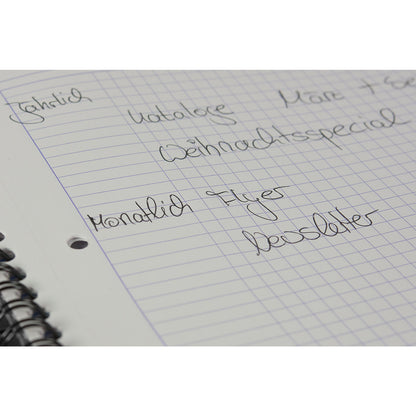 Jährlich Kataloge März +
Weihnachtsspecial
Monatlich Flyer
Newsletter